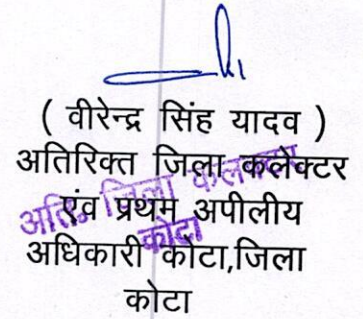 ( वीरेन्द्र सिंह यादव )
अतिरिक्त जिला कलेक्टर
एंव प्रथम अपीलीय
अधिकारी कोटा,जिला
कोटा
अति० जिला कलक्टर
कोटा